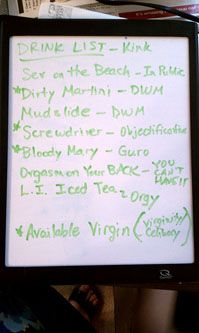 DRINK LIST - Kink
Sex on the Beach - In Public
*Dirty Martini - DWM
Mudslide - DWM
*Screwdriver - Objectification
*Bloody Mary - Guro
Orgasm on Your BACK - YOU CAN'T HAVE IT
L.I. Iced Tea - Orgy
*Available Virgin (Virginity/Celibacy)